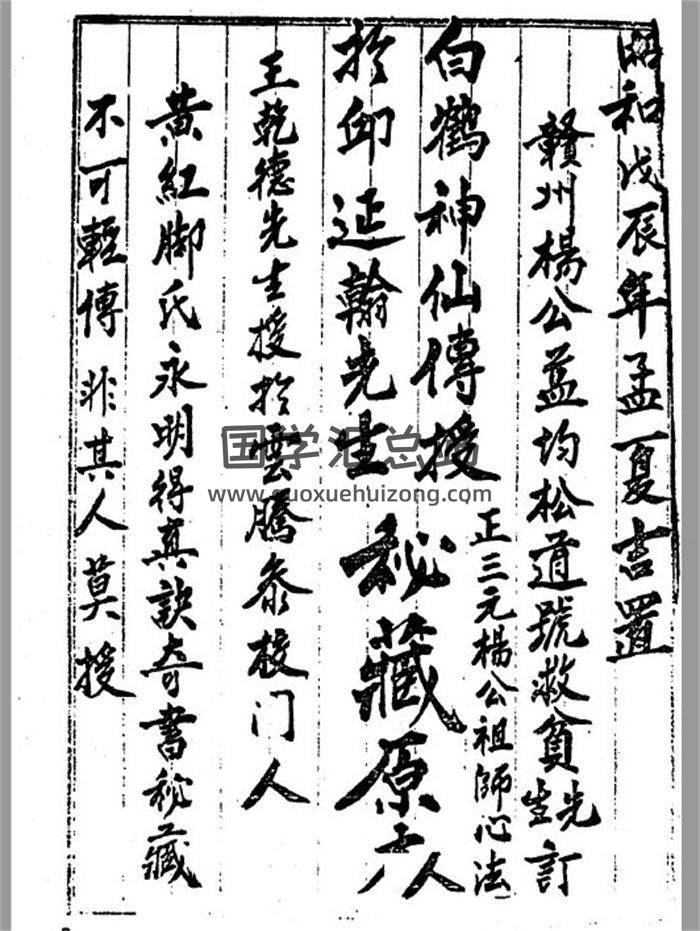 昭和戊辰年孟夏吉置
贛州楊公益均松道號救貧先生訂
白鶴神仙傳授
正三元楊公祖師心法
於邱延翰先生秘藏原本人
王乾德先生授於雲騰參校门人
黃紅脚氏永明得真訣奇書秘藏
不可輕傳非其人莫授
国学汇总站
www.guoxuehuizong.com